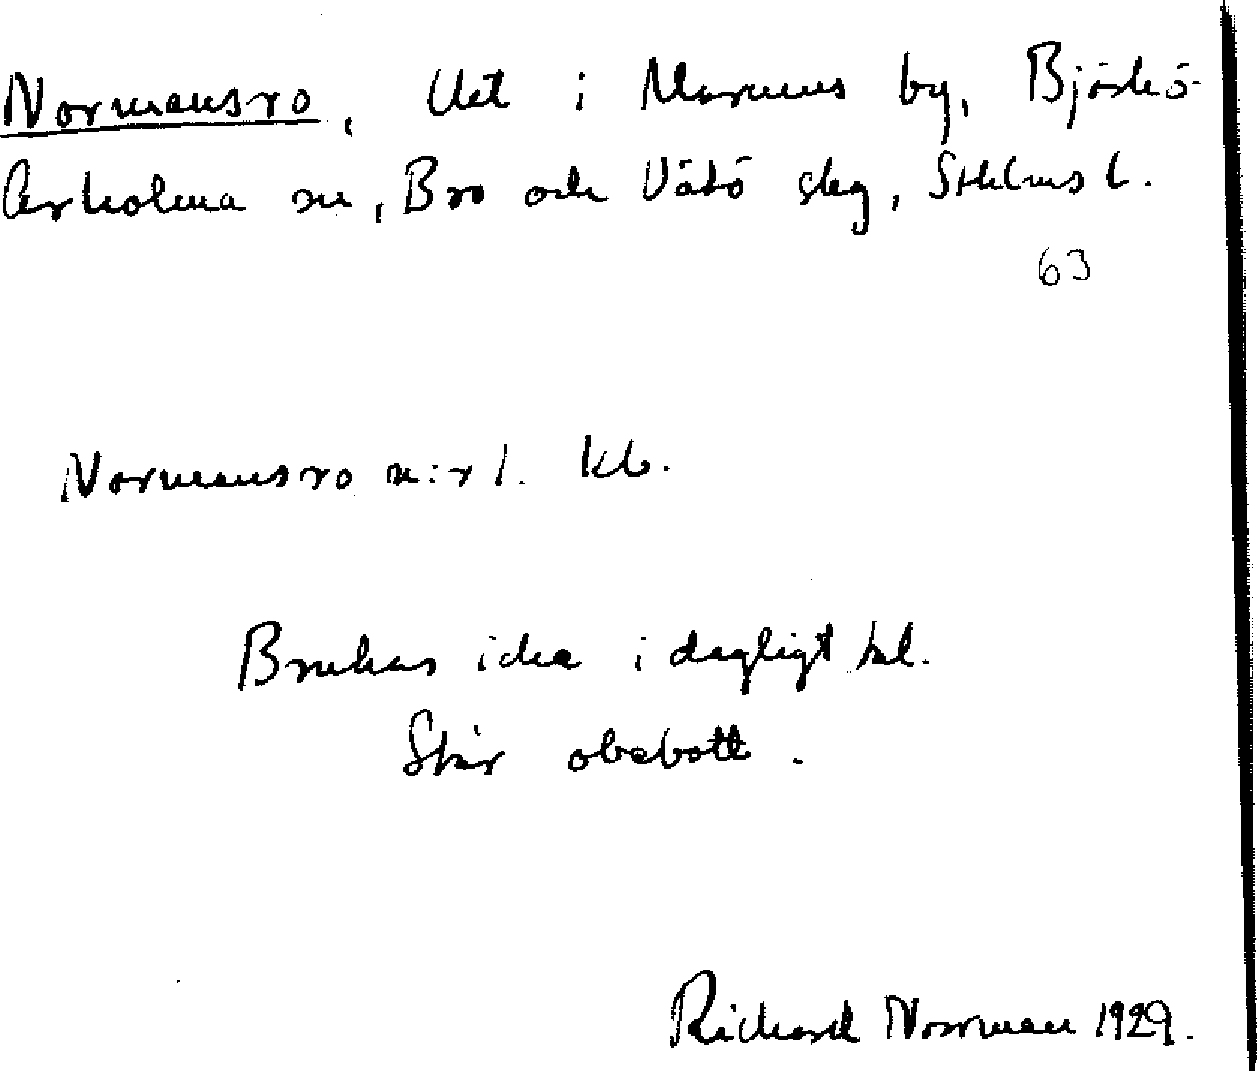 Normansro, Uet i Marums by, Björkö-
Arholma sn, Bro och Vätö skg, Sthlms l.
63
Normansro n:r 1. kb.
Brukas icke i dagligt tal.
Står obebott.
Richard Norrman 1929.